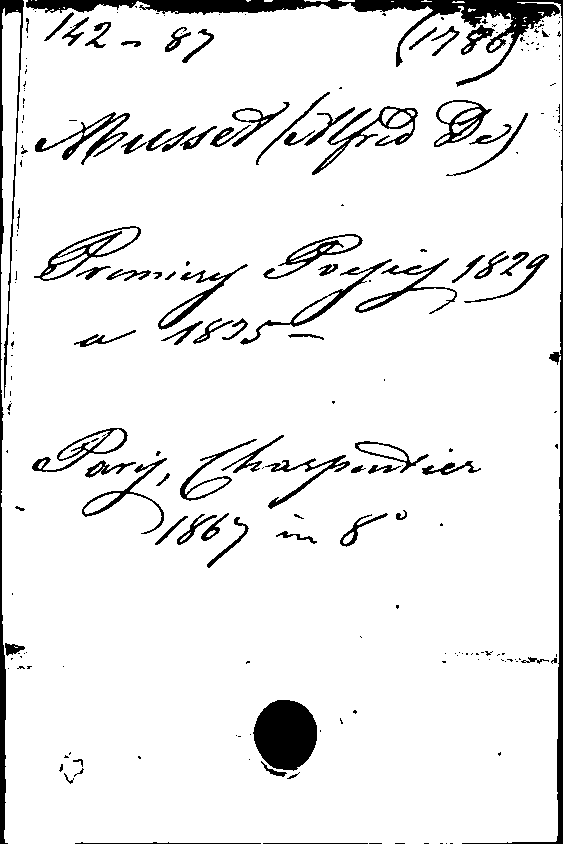 142 - 87 (1786)
Musset (Alfred De)
Premiers Poesies 1829
a 1835 -
Paris, Charpentier
1867 in 8°